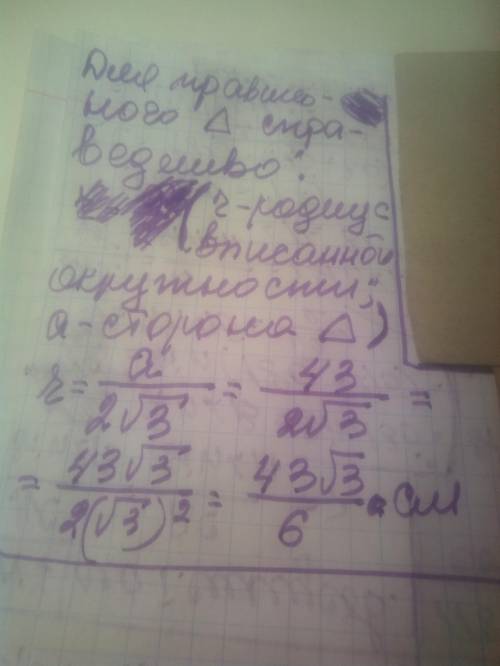 Для правиль-
ного △ спра-
ведливо:
(r-радиус
вписанной
окружности;
a-сторона △)
r = a/(2√3) = 43/(2√3) =
= 43√3/(2(√3)²) = 43√3/6 см